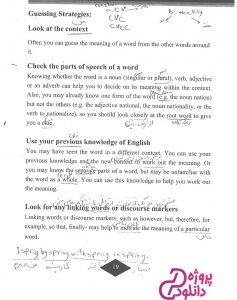 Guessing Strategies:
CVC
CVCC
B. weekly
Look at the context
Often you can guess the meaning of a word from the other words around
it.
Check the parts of speech of a word
Knowing whether the word is a noun (singular or plural), verb, adjective
or an adverb can help you to decide on its meaning within the context.
Also, you may already know one form of the word (e.g. the noun nation)
but not the others (e.g. the adjective national, the noun nationality, or the
verb to nationalize), so you should look closely at the root word to give
you a clue.
Use your previous knowledge of English
You may have seen the word in a different context. You can use your
previous knowledge and the new context to work out the meaning. Or
you may know the separate parts of a word, but may be unfamiliar with
the word as a whole. You can use this knowledge to help you work out
the meaning.
Look for any linking words or discourse markers
Linking words or discourse markers; such as however, but, therefore, for
example, so that, finally- may help to indicate the meaning of a particular
word.
19
پروژه
دانلود